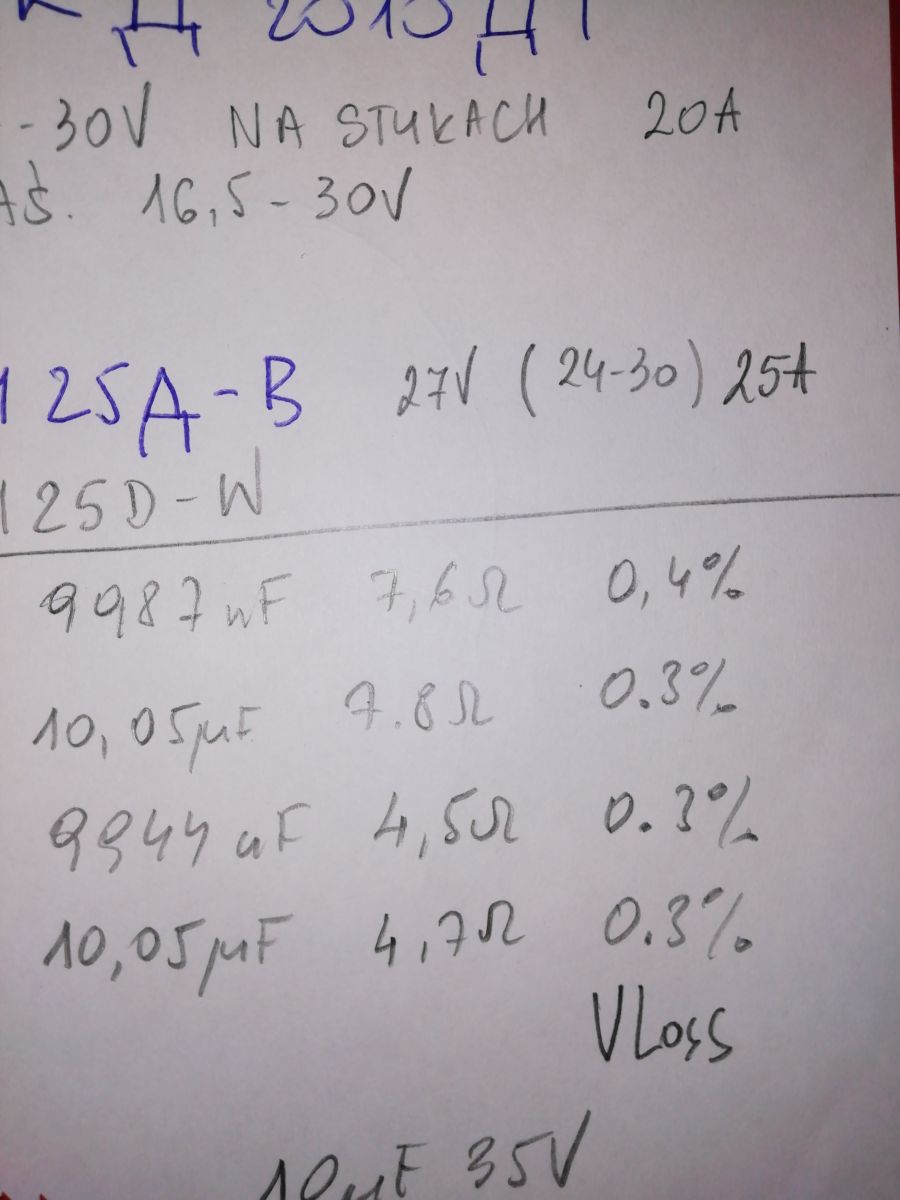 Д 2010ДТ
-30V NA STYKACH 20A
AŚ. 16,5-30V
125Д-В 27V (24-30) 25A
125D-W
9987nF 7,6Ω 0,4%
10,05μF 7.8Ω 0.3%
9944nF 4,5Ω 0.3%
10,05μF 4,7Ω 0.3%
VLoss
10μF 35V